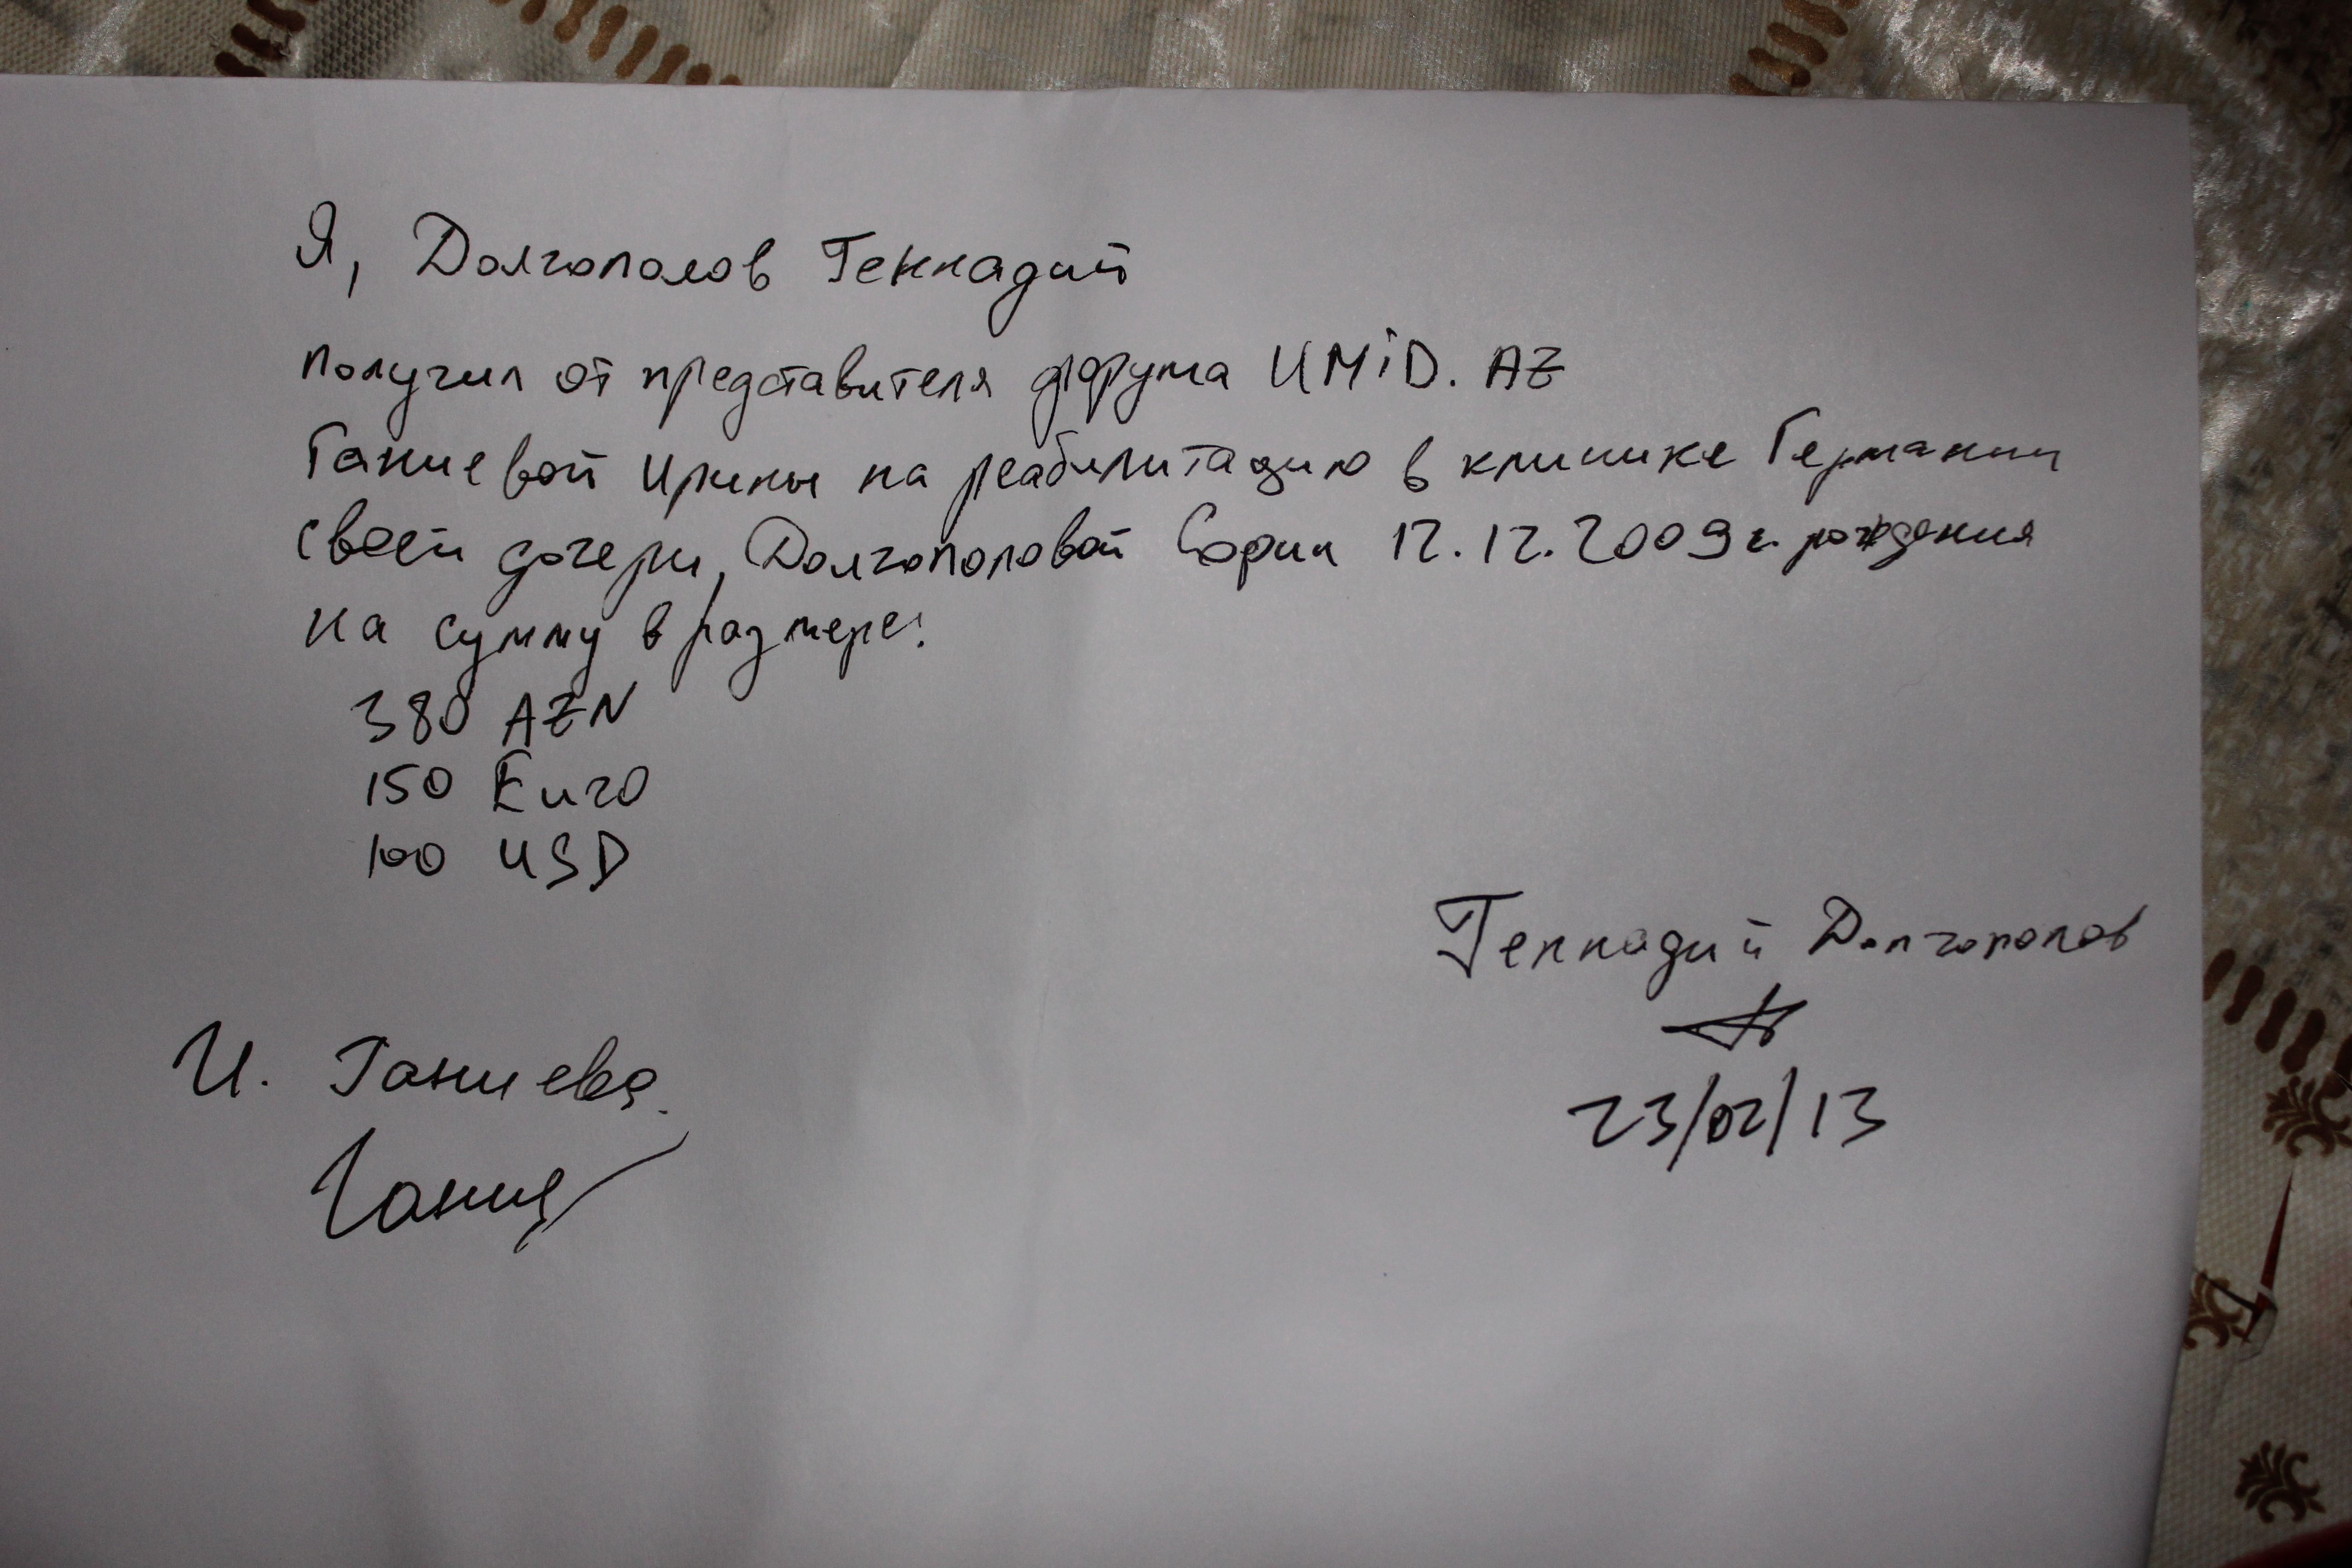 Я, Долгополов Геннадий
получил от представителя форума UMiD. AZ
Ганиевой Ирины на реабилитацию в клинике Германии
своей дочери, Долгополовой Софии 12.12.2009г. рождения
на сумму в размере:
380 AZN
150 Euro
100 USD
Геннадий Долгополов
23/02/13
И. Ганиева.